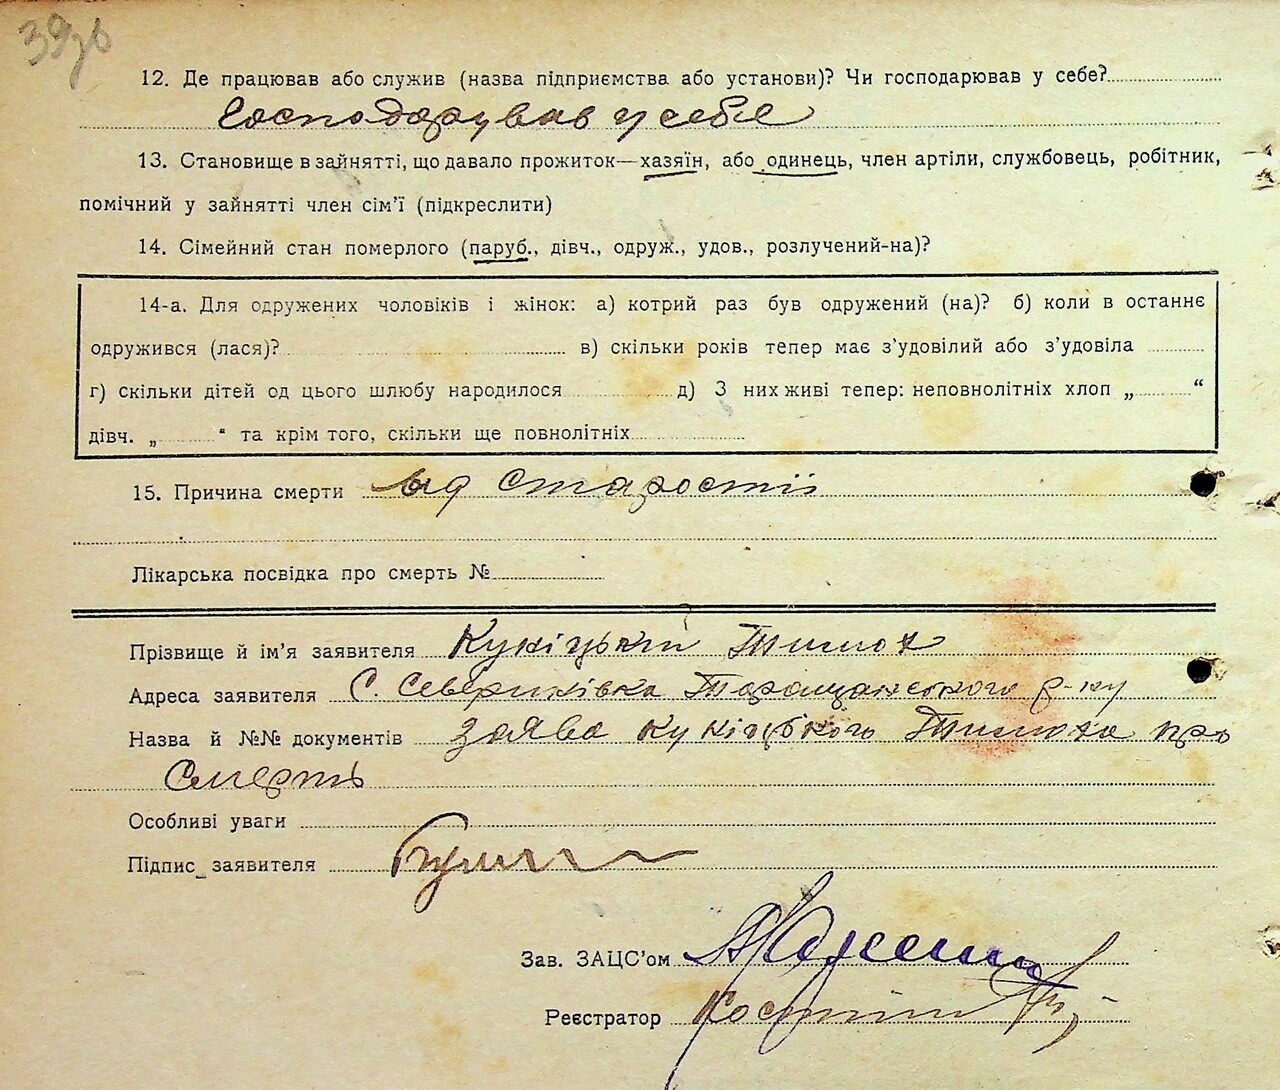 39зв
12. Де працював або служив (назва підприємства або установи)? Чи господарював у себе?
Господарував у себе
13. Становище в зайнятті, що давало прожиток—хазяїн, або одинець, член артіли, службовець, робітник,
помічний у зайнятті член сім'ї (підкреслити)
14. Сімейний стан померлого (паруб., дівч., одруж., удов., розлучений-на)?
14-а. Для одружених чоловіків і жінок: а) котрий раз був одружений (на)? б) коли в останнє
одружився (лася)? в) скільки років тепер має з'удовілий або з'удовіла
г) скільки дітей од цього шлюбу народилося д) З них живі тепер: неповнолітніх хлоп „ “
дівч. „ “ та крім того, скільки ще повнолітніх
15. Причина смерти від старостії
Лікарська посвідка про смерть №
Прізвище й ім'я заявителя Кукіцький Тимох
Адреса заявителя С. Севериківка Таращанського р-ну
Назва й №№ документів заява Кукіцького Тимоха про
Смерть
Особливі уваги
Підпис заявителя
Зав. ЗАЦС'ом
Реєстратор